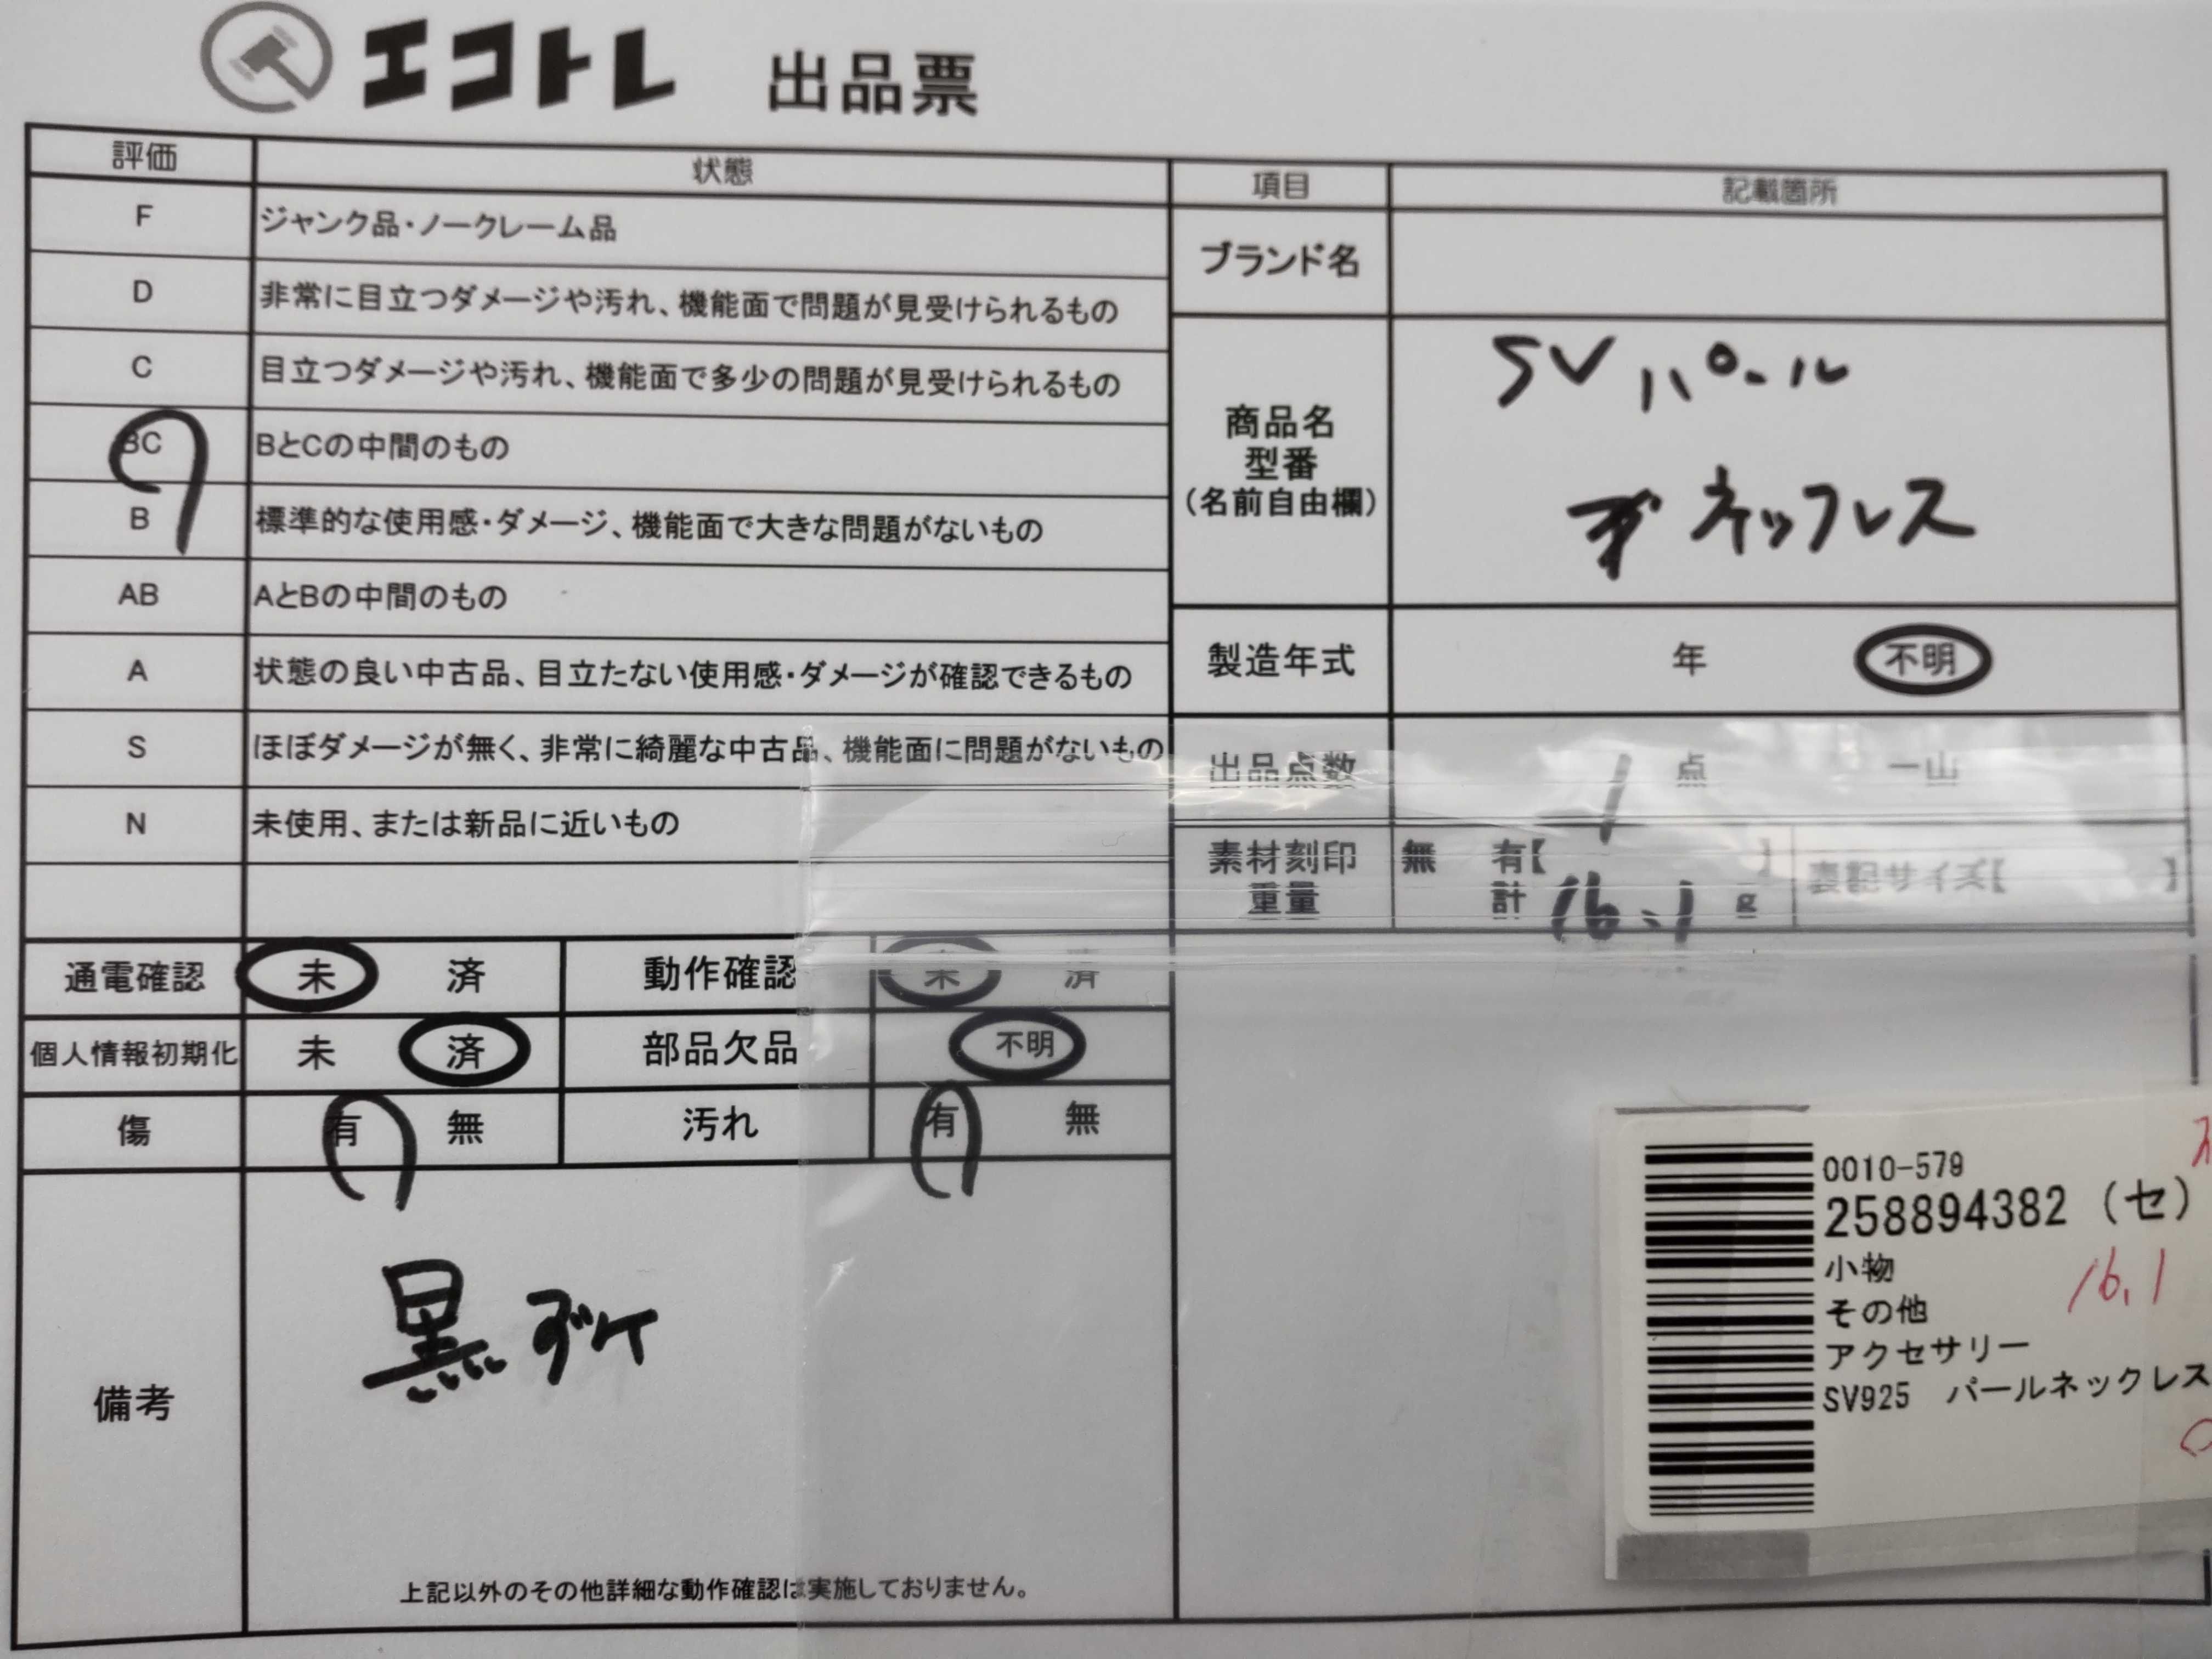 エコトレ 出品票
評価 状態
F ジャンク品・ノークレーム品
D 非常に目立つダメージや汚れ、機能面で問題が見受けられるもの
C 目立つダメージや汚れ、機能面で多少の問題が見受けられるもの
BC BとCの中間のもの
B 標準的な使用感・ダメージ、機能面で大きな問題がないもの
AB AとBの中間のもの
A 状態の良い中古品、目立たない使用感・ダメージが確認できるもの
S ほぼダメージが無く、非常に綺麗な中古品、機能面に問題がないもの
N 未使用、または新品に近いもの
通電確認 未 済 動作確認 未 済
個人情報初期化 未 済 部品欠品 不明
傷 有 無 汚れ 有 無
備考
黒ずケ
上記以外のその他詳細な動作確認は実施しておりません。
項目 記載箇所
ブランド名
商品名
型番
(名前自由欄)
SVパール
ネックレス
製造年式 年 不明
出品点数 1 点 一山
素材刻印 無 有【 】
重量 計 16.1 g
表記サイズ【 】
0010-579
258894382 (セ)
小物
16.1
その他
アクセサリー
SV925 パールネックレス